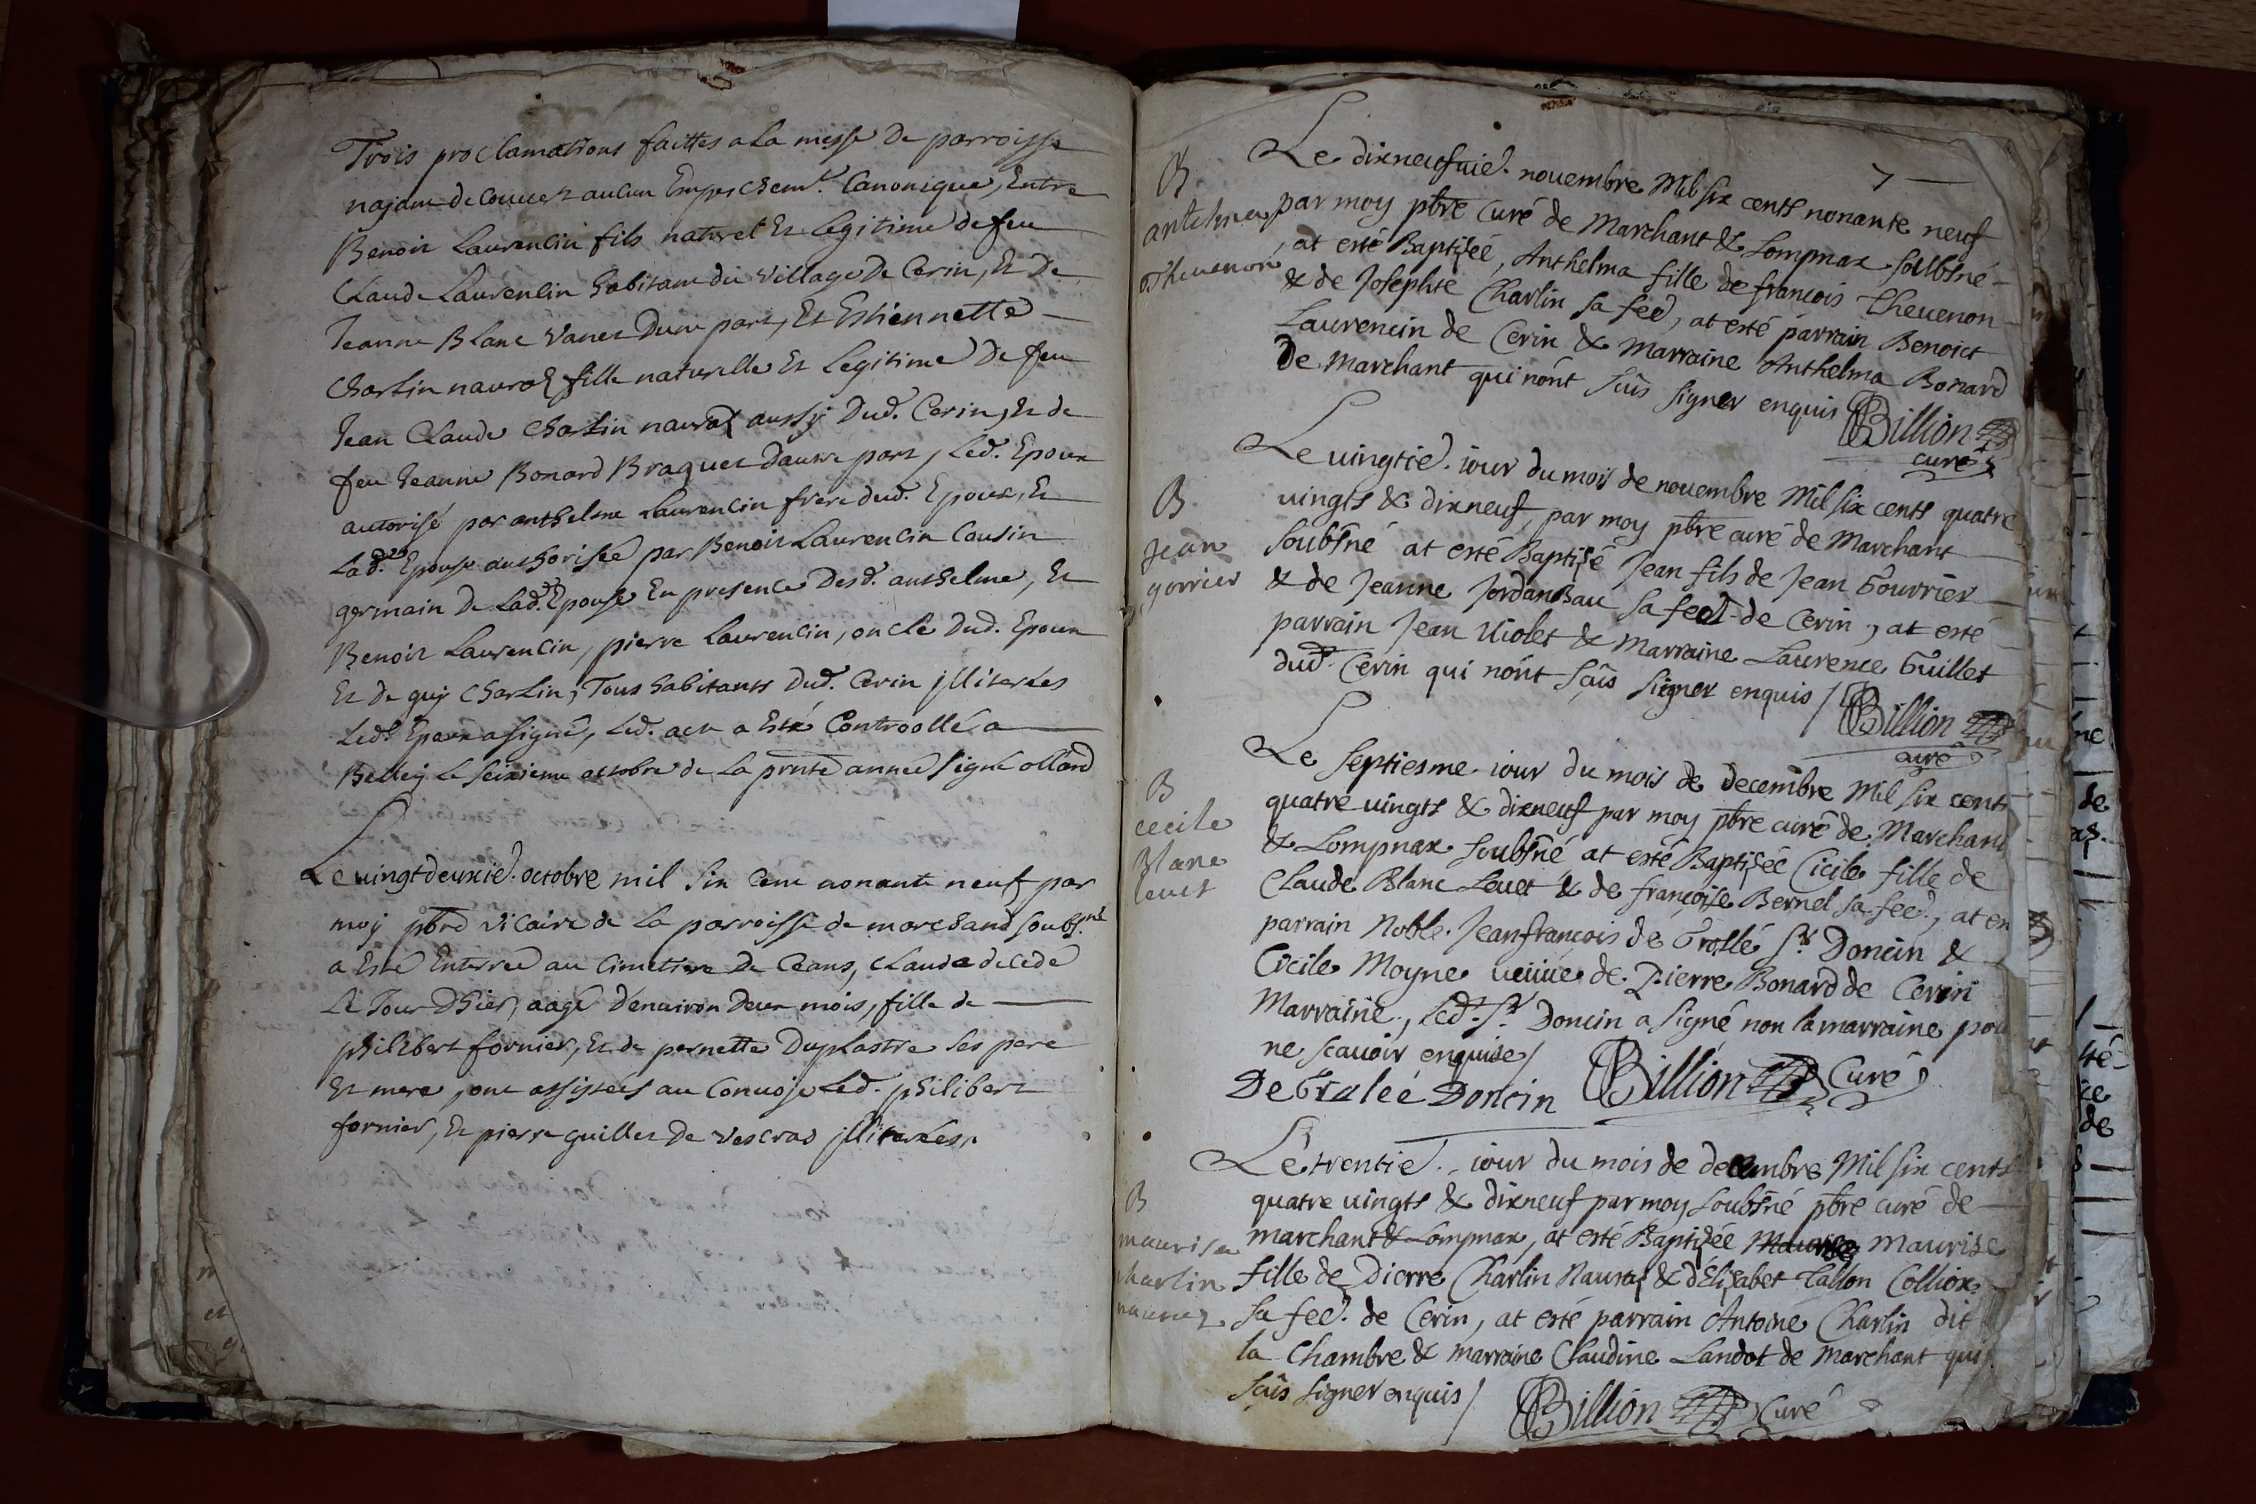 Trois proclamations faittes a la messe de parroisse
najant decouuert aucun Empeschem.t Canonique, Entre
Benoit Laurencin fils naturel Et Legitime de feu
Claude Laurencin habitant du village de Cerin, Et de
Jeanne Blanc vanet Dune part, Et Estiennette
Charlin naurаz fille naturelle Et Legitime De feu
Jean Claude Charlin nauraz aussy Dud. Cerin, Et de
feu Jeanne Bonard Braquet Dautre part, Led. Epoux
autorisé par anthelme Laurencin frere dud. Epoux, Et
Lad. Epouse authorisée par Benoit Laurencin Cousin
germain de Lad. Epouse En presence Desd. anthelme, Et
Benoit Laurencin, pierre Laurencin, oncle Dud. Epoux
Et de guy Charlin, Tous habitants Dud. Cerin jlliterées
Led. Epoux a signé, Led. acte a Esté Controollé a
Belley le seizieme octobre de la prnte année signé ollard
Le vingtdeuxie. octobre mil six cent nonante neuf par
moy pbre vicaire de la parroisse de marchand soubs.né
a Esté Enterrée au cimetiere De Ceans, claude decede
Le Jour Dhier, aagé d'enuiron Deux mois, fille de
philibert fornier, Et de pernette Duplastre ses pere
Et mere, ont assistées au Conuoje Led. philibert
fornier, Et pierre guillet De vescras jlliterées.
7
Le dixneufuie. nouembre Mil six cents nonante neuf
par moy pbre curé de Marchant & Lompnax soubsné
at esté Baptizéé, Anthelma fille de francois Theuenon
& de Josephte Charlin sa fee, at esté parrain Benoict
Laurencin de Cerin & Marraine Anthelma Bonard
de Marchant qui nont sçus signer enquis Billion
curé
B
anthelma
Theuenon
Le uingtie. iour du mois de nouembre Mil six cents quatre
uingts & dixneuf, par moy pbre curé de Marchant
soubsné at esté Baptizé Jean fils de Jean Gourrier
& de Jeanne Jordan Bau sa fee de Cerin, at esté
parrain Jean Uiolet & Marraine Laurence Guillet
dud. Cerin qui nont sçus signer enquis / Billion
curé
B
Jean
gorrier
Le septiesme iour du mois de decembre Mil six cents
quatre uingts & dixneuf par moy pbre curé de Marchant
& Lompnax soubsné at esté Baptizéé Cicile fille de
Claude Blanc Leuet & de françoise Bernel sa fee, at en
parrain Noble Jeanfrançois de Grollé Sr Doncin &
Cicile Moyne ueuue de Pierre Bonard de Cerin
Marraine, Led. Sr Doncin a signé non la marraine pour
ne scauoir enquise /
De Gralée Doncin Billion Curé
B
cecile
Blanc
leuet
Le trentie. iour du mois de decembre Mil six cents
quatre uingts & dixneuf par moy soubsné pbre curé de
marchant & Lompnax, at esté Baptizéé Maurise maurise
fille de Pierre Charlin Nauraz & d'Elizabet Tallon Colliox
sa fee. de Cerin, at esté parrain Antoine Charlin dit
la Chambre & marraine Claudine Landot de Marchant qui
sçus signer enquis / Billion Curé
B
maurise
charlin